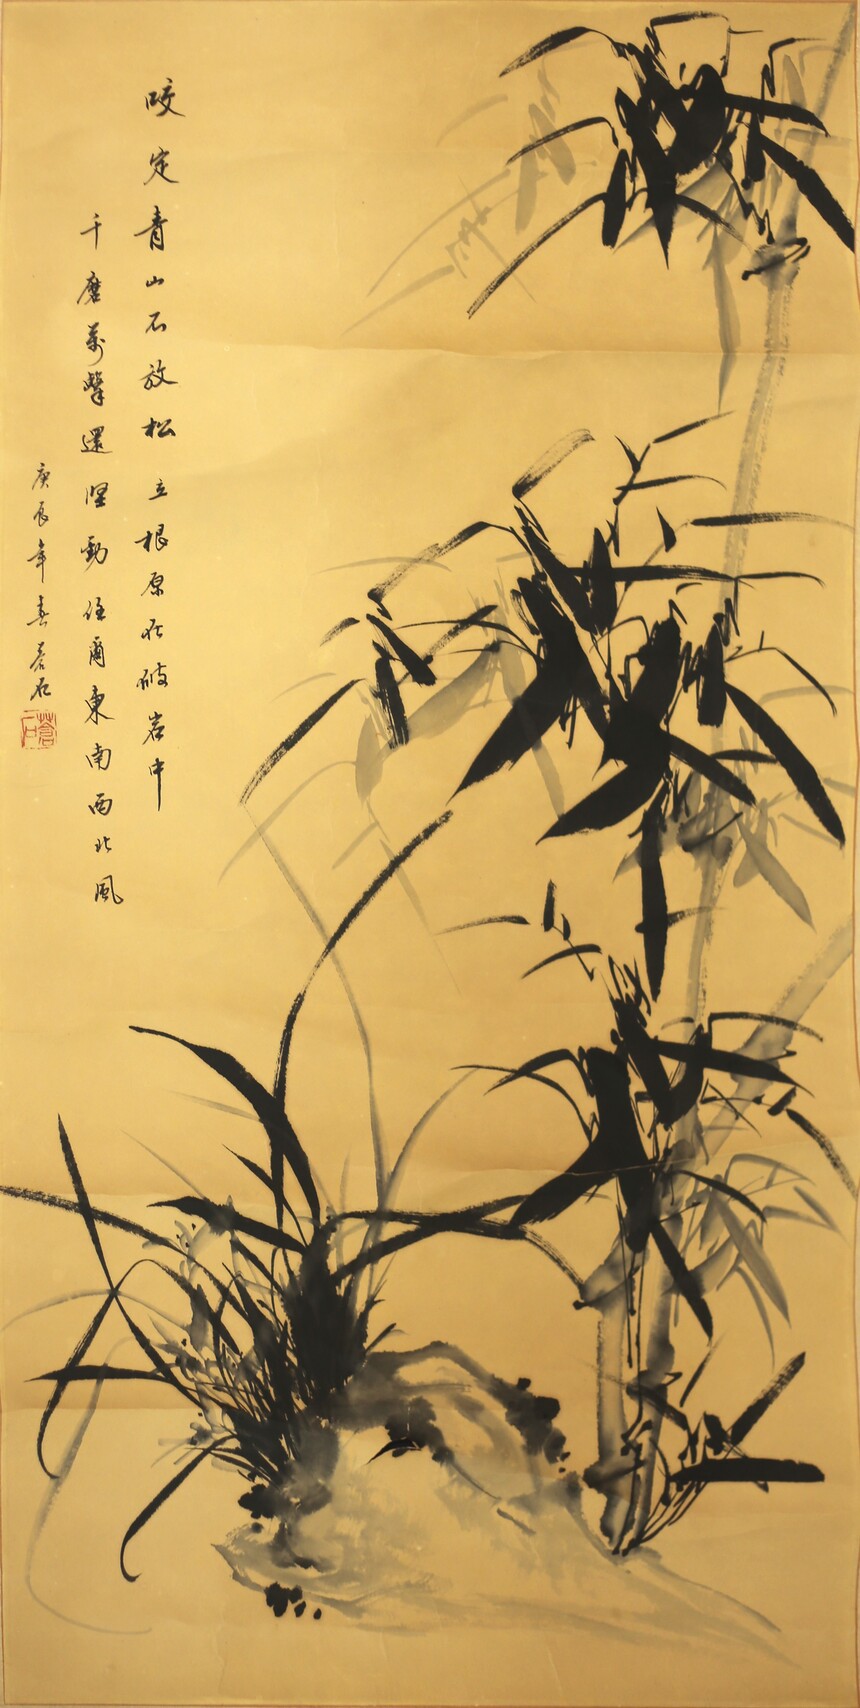 咬定青山不放松 立根原在破岩中
千磨萬擊還坚勁 任爾東南西北風
庚辰年春蒼石
蒼石